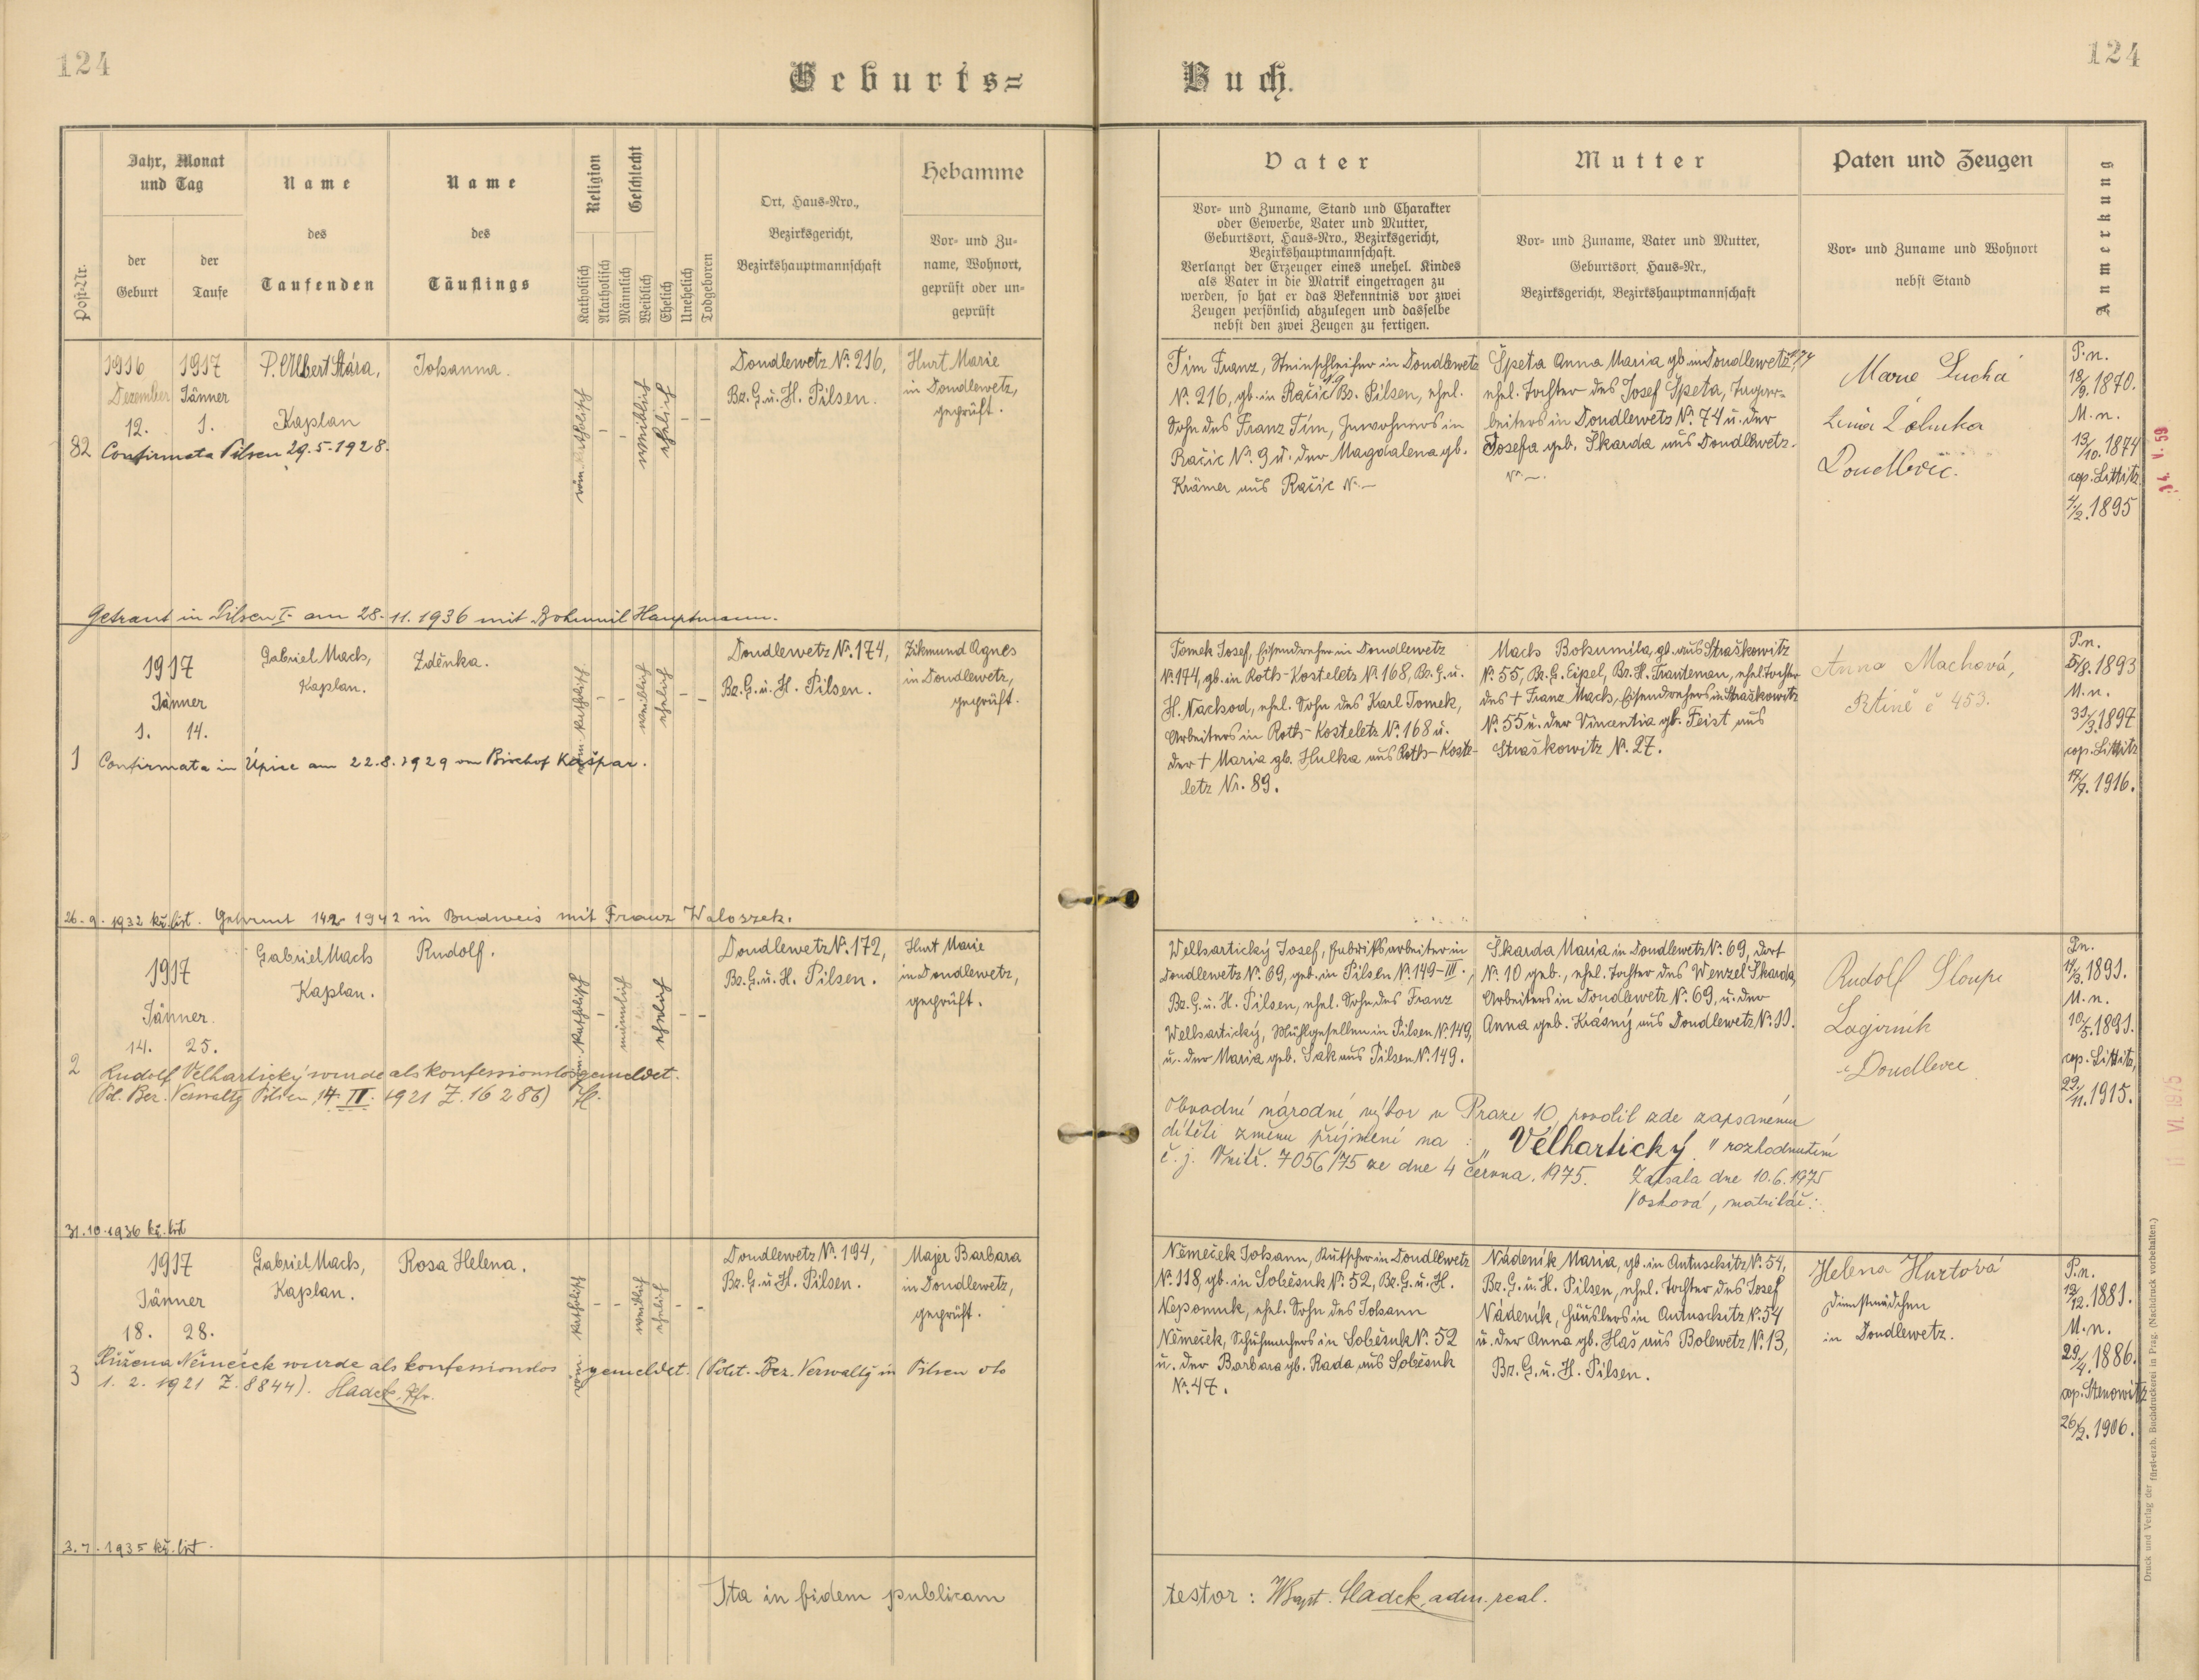 124
124
Geburts=
Buch.
Post-Nr.
Jahr, Monat
und Tag
der
Geburt
der
Taufe
Name
des
Taufenden
Name
des
Täuflings
Religion
Katholisch
Akatholisch
Geschlecht
Männlich
Weiblich
Ehelich
Unehelich
Todgeboren
Ort, Haus=Nro.,
Bezirksgericht,
Bezirkshauptmannschaft
Hebamme
Vor= und Zu=
name, Wohnort,
geprüft oder un=
geprüft
Vater
Vor= und Zuname, Stand und Charakter
oder Gewerbe, Vater und Mutter,
Geburtsort, Haus=Nro., Bezirksgericht,
Bezirkshauptmannschaft.
Verlangt der Erzeuger eines unehel. Kindes
als Vater in die Matrik eingetragen zu
werden, so hat er das Bekenntnis vor zwei
Zeugen persönlich abzulegen und dasselbe
nebst den zwei Zeugen zu fertigen.
Mutter
Vor= und Zuname, Vater und Mutter,
Geburtsort, Haus=Nr.,
Bezirksgericht, Bezirkshauptmannschaft
Paten und Zeugen
Vor= und Zuname und Wohnort
nebst Stand
Anmerkung
82
1916
Dezember
12.
1917
Jänner
1.
P. Albert Stára,
Kaplan
Johanna.
röm. katholisch
weiblich
ehelich
Doudlewetz Nr. 216,
Bz. G. u. H. Pilsen.
Hurt Marie
in Doudlewetz,
geprüft.
Confirmata Pilsen 29.5.1928.
Getraut in Pilsen I. am 28.11.1936 mit Bohumil Hauptmann.
Tím Franz, Steinschleifer in Doudlewetz
Nr. 216, gb. in Račic 19 Bz. Pilsen, ehel.
Sohn des Franz Tím, Inwohners in
Račic Nr. 9 u. der Magdalena gb.
Krämer aus Račic Nr. —
Špeta Anna Maria gb. in Doudlewetz 74
ehel. Tochter des Josef Špeta, Tagar-
beiters in Doudlewetz Nr. 74 u. der
Josefa geb. Škarda aus Doudlewetz.
Nr. —.
Marie Suchá
Doudlevic.
P. n.
18/9. 1870.
M. n.
13/10. 1874
cop. Littitz
4/2. 1895
14. V. 59
1
1917
Jänner
1. 14.
Gabriel Mach,
Kaplan.
Zděnka.
röm. katholisch
weiblich
ehelich
Doudlewetz Nr. 174,
Bz. G. u. H. Pilsen.
Zikmund Agnes
in Doudlewetz,
geprüft.
Confirmata in Úpice am 22.8.1929 von Bischof Kašpar.
26.9.1932 kř. list. Getraut 14.2.1942 in Budweis mit Franz Waloszek.
Tomek Josef, Eisendreher in Doudlewetz
Nr. 174, gb. in Roth-Kosteletz Nr. 168, Bz. G. u.
H. Náchod, ehel. Sohn des Karl Tomek,
Arbeiters in Roth-Kosteletz Nr. 168 u.
der † Maria gb. Hulka aus Roth-Koste-
letz Nr. 89.
Mach Bohumila, gb. aus Straškowitz
Nr. 55, Bz. G. Eipel, Bz. H. Trautenau, ehel. Tochter
des † Franz Mach, Eisendrehers in Straškowitz
Nr. 55 u. der Vincentia gb. Feist aus
Straškowitz Nr. 27.
Anna Machová,
Rtině č 453.
P. n.
5/8. 1893
M. n.
31/3. 1897
cop. Littitz
17/7. 1916.
2
1917
Jänner.
14. 25.
Gabriel Mach
Kaplan.
Rudolf.
röm. katholisch
männlich
ehelich
Doudlewetz Nr. 172,
Bz. G. u. H. Pilsen.
Hurt Marie
in Doudlewetz,
geprüft.
Rudolf Velhartický wurde als konfessionslos gemeldet.
(Pol. Bez. Verwaltg Pilsen 14. II. 1921 Z. 16286)
31.10.1936 kř. list
Welhartický Josef, Fabriksarbeiter in
Doudlewetz Nr. 69, geb. in Pilsen Nr. 149-III.,
Bz. G. u. H. Pilsen, ehel. Sohn des Franz
Welhartický, Mühlgesellen in Pilsen Nr. 149,
u. der Maria geb. Sak aus Pilsen Nr. 149.
Škarda Maria in Doudlewetz Nr. 69, dort
Nr. 10 geb., ehel. Tochter des Wenzel Škarda,
Arbeiters in Doudlewetz Nr. 69, u. der
Anna geb. Krásný aus Doudlewetz Nr. 11.
Rudolf Sloup
Doudlevce
P. n.
14/3. 1891.
M. n.
10/5. 1891.
cop. Littitz,
22/11. 1915.
Obvodní národní výbor v Praze 10 povolil zde zapsanému
dítěti změnu příjmení na: „Velhartický" rozhodnutím
č. j. Vnitř. 7056/75 ze dne 4 června. 1975. Zapsala dne 10.6.1975
Vosková, matrikář.
11 VI. 1975
3
1917
Jänner
18. 28.
Gabriel Mach,
Kaplan.
Rosa Helena.
röm. katholisch
weiblich
ehelich
Doudlewetz Nr. 194,
Bz. G. u. H. Pilsen.
Majer Barbara
in Doudlewetz,
geprüft.
Růžena Němeček wurde als konfessionslos gemeldet. (Polit. Bez. Verwaltg in Pilsen
1. 2. 1921 Z. 8844). Sladek, Pfr.
3.7.1935 kř. list.
Němeček Johann, Kutscher in Doudlewetz
Nr. 118, gb. in Soběsuk Nr. 52, Bz. G. u. H.
Nepomuk, ehel. Sohn des Johann
Němeček, Schuhmachers in Soběsuk Nr. 52
u. der Barbara gb. Rada aus Soběsuk
Nr. 47.
Nádeník Maria, gb. in Autuschitz Nr. 54,
Bz. G. u. H. Pilsen, ehel. Tochter des Josef
Nádeník, Häuslers in Autuschitz Nr. 54
u. der Anna gb. Haš aus Bolewetz Nr. 13,
Bz. G. u. H. Pilsen.
Helena Hurtová
Dienstmädchen
in Doudlewetz.
P. n.
12/12. 1881.
M. n.
29/4. 1886.
cop. Stenowitz
26/2. 1906.
Ita in fidem publicam
testor: Sladek, adm. real.
Druck und Verlag der fürst-erzb. Buchdruckerei in Prag. (Nachdruck vorbehalten.)